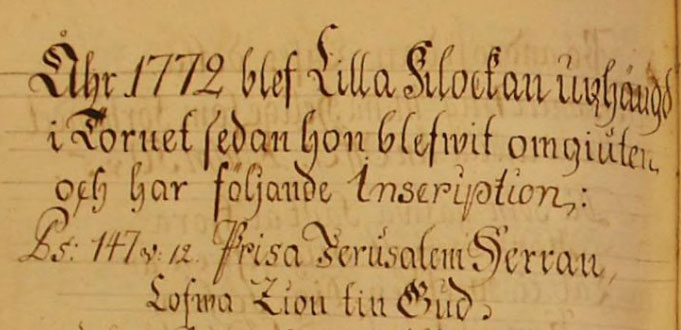 Åhr 1772 blef Lilla Klockan uphängd
i Tornet sedan hon blefwit omgiuten,
och har följande Inscription,:
Ps: 147 v: 12. Prisa Jerusalem Herran,
Lofwa Zion tin Gud.